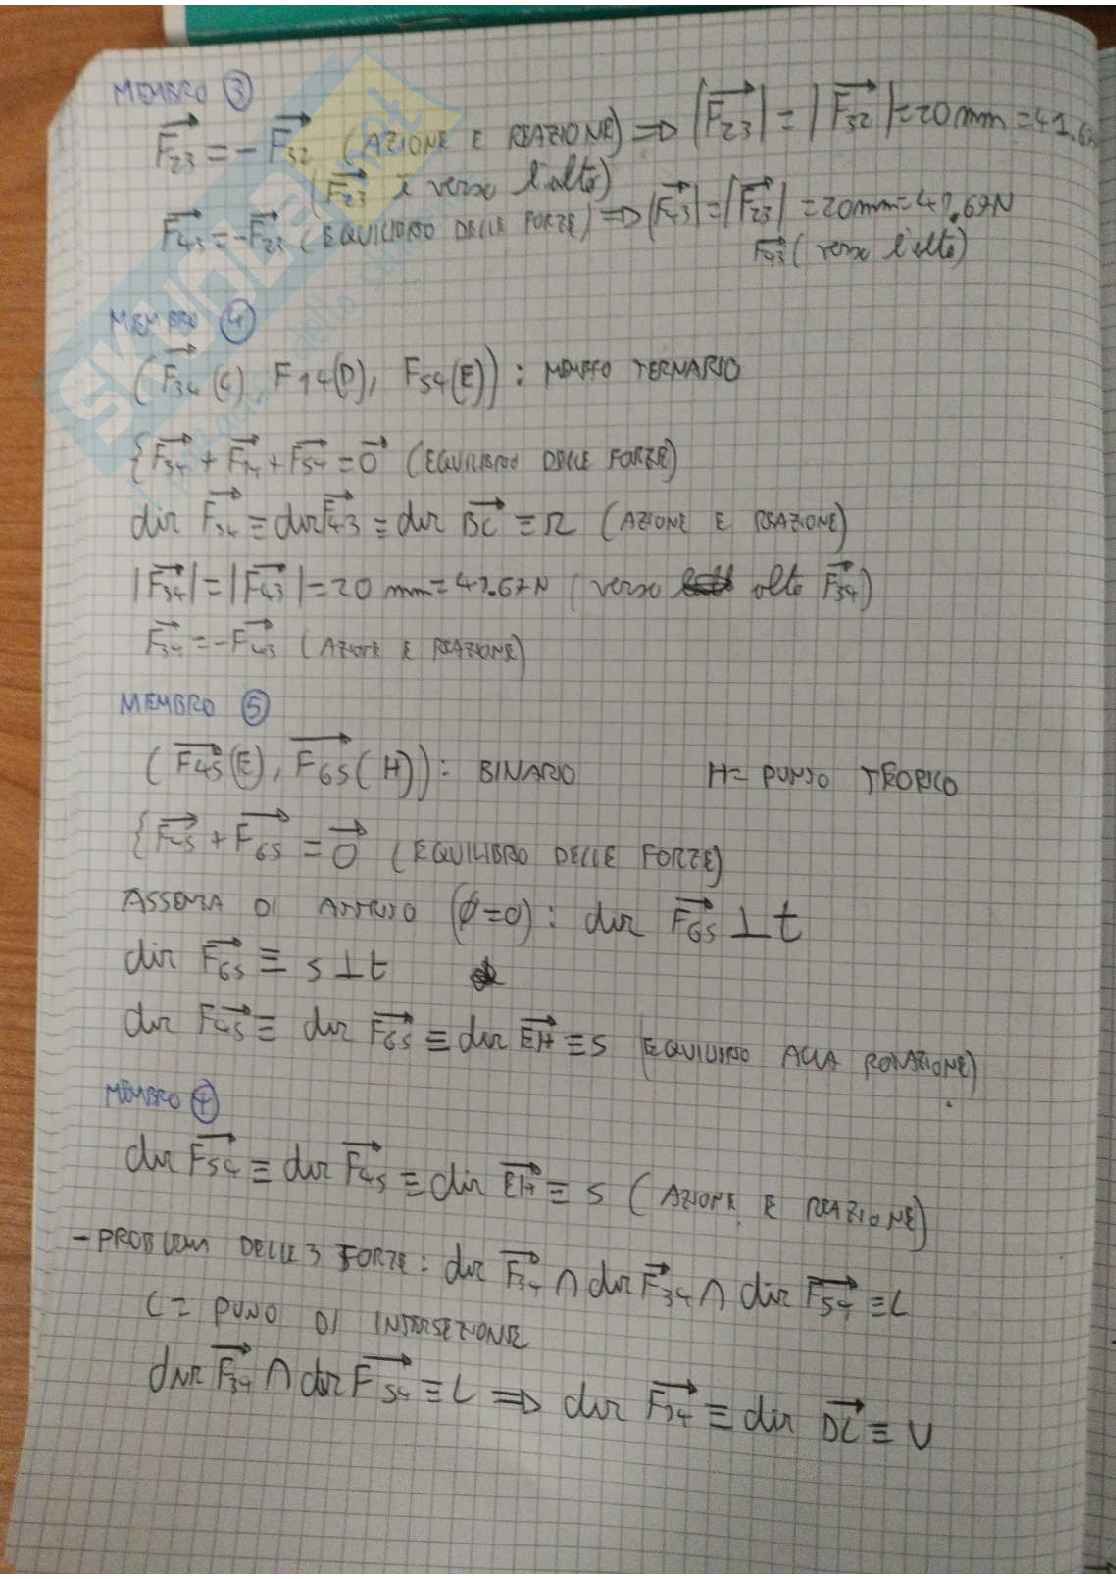 MEMBRO ③
F23 = -F32 (AZIONE E REAZIONE) => |F23| = |F32| = 20 mm = 41.6
(F23 è verso l'alto)
F43 = -F23 (EQUILIBRIO DELLE FORZE) => |F43| = |F23| = 20mm = 41.67N
F43 (verso l'alto)
MEMBRO ④
(F34(C), F14(D), F54(E)): MEMBRO TERNARIO
{F34 + F14 + F54 = 0 (EQUILIBRIO DELLE FORZE)
dir F34 ≡ dir F43 ≡ dir BC ≡ r (AZIONE E REAZIONE)
|F34| = |F43| = 20 mm = 41.67N (verso alto F34)
F34 = -F43 (AZIONE E REAZIONE)
MEMBRO ⑤
(F45(E), F65(H)): BINARIO H = PUNTO TEORICO
{F45 + F65 = 0 (EQUILIBRO DELLE FORZE)
ASSENZA DI ATTRITO (φ=0): dir F65 ⊥ t
dir F65 ≡ s ⊥ t
dir F45 ≡ dir F65 ≡ dir EH ≡ s (EQUILIBRIO ALLA ROTAZIONE)
MEMBRO ④
dir F54 ≡ dir F45 ≡ dir EH ≡ s (AZIONE E REAZIONE)
- PROBLEMA DELLE 3 FORZE: dir F34 ∩ dir F34 ∩ dir F54 ≡ L
L = PUNO DI INTERSEZIONE
dir F34 ∩ dir F54 ≡ L => dir F14 ≡ dir DL ≡ U
SKUOLA.net